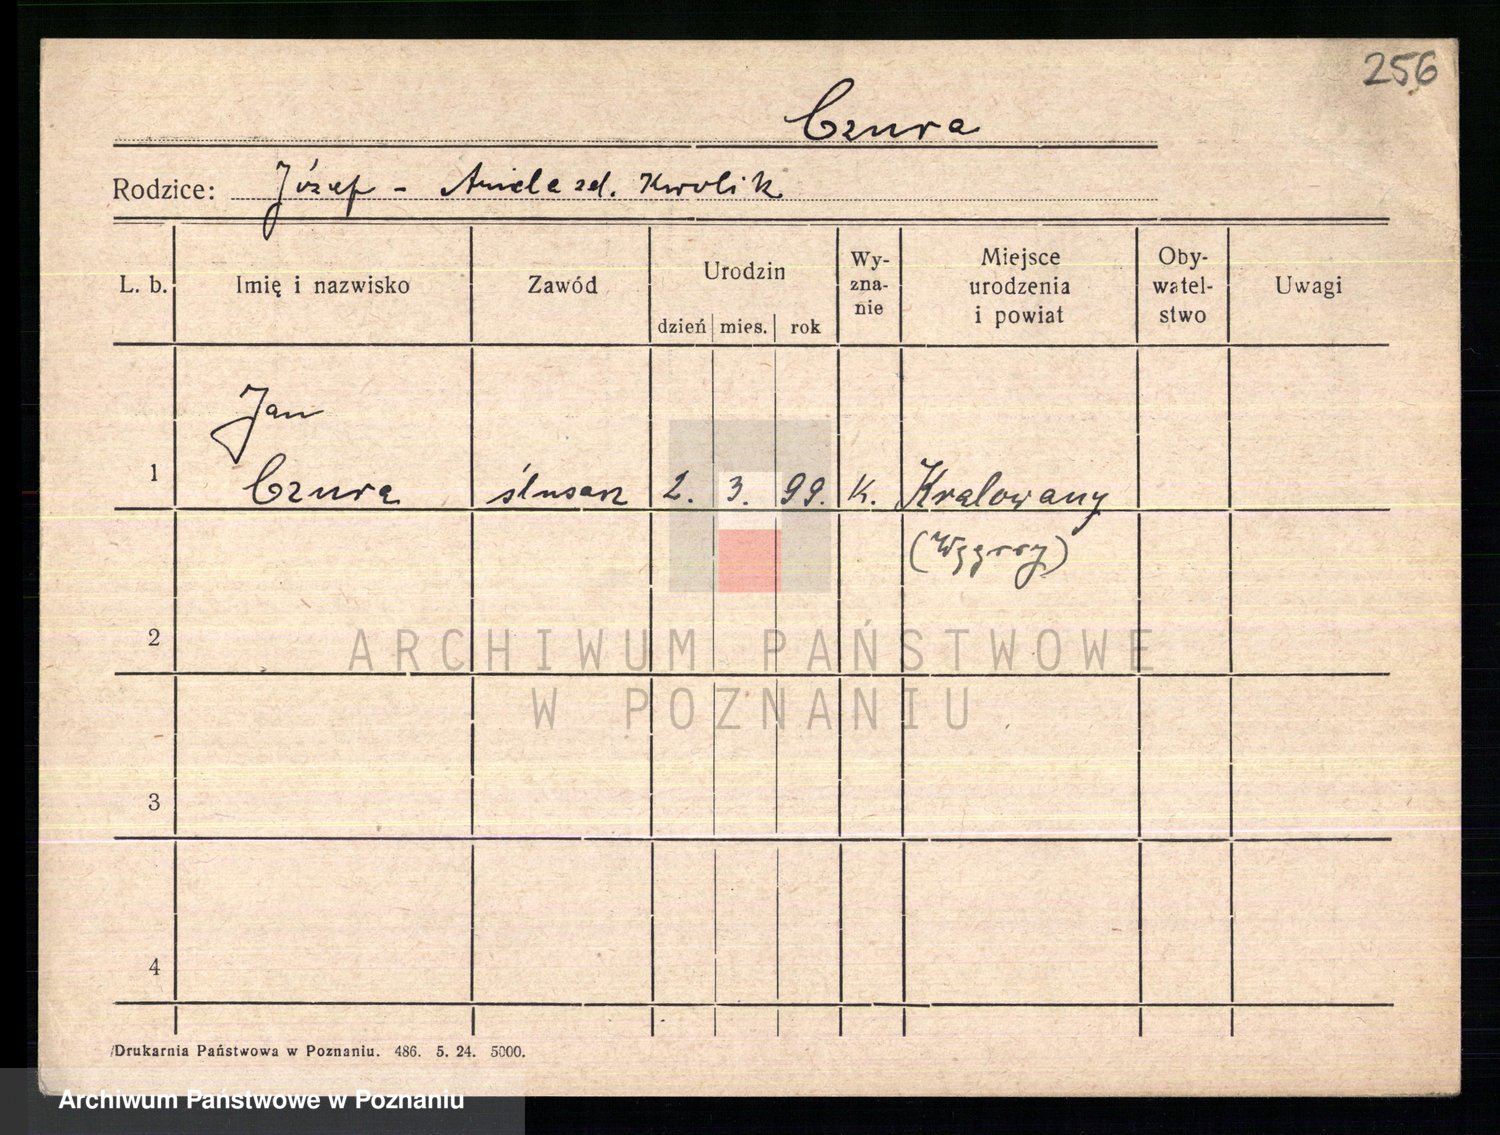 256
Czura
Rodzice: Józef - Aniela zd. Kwolik
L. b. Imię i nazwisko Zawód Urodzin dzień mies. rok Wy-zna-nie Miejsce urodzenia i powiat Oby-watel-stwo Uwagi
Jan
1 Czura ślusarz 2. 3. 99. K. Kralowany
(Węgry)
2
ARCHIWUM PAŃSTWOWE
W POZNANIU
3
4
Drukarnia Państwowa w Poznaniu. 486. 5. 24. 5000.
Archiwum Państwowe w Poznaniu